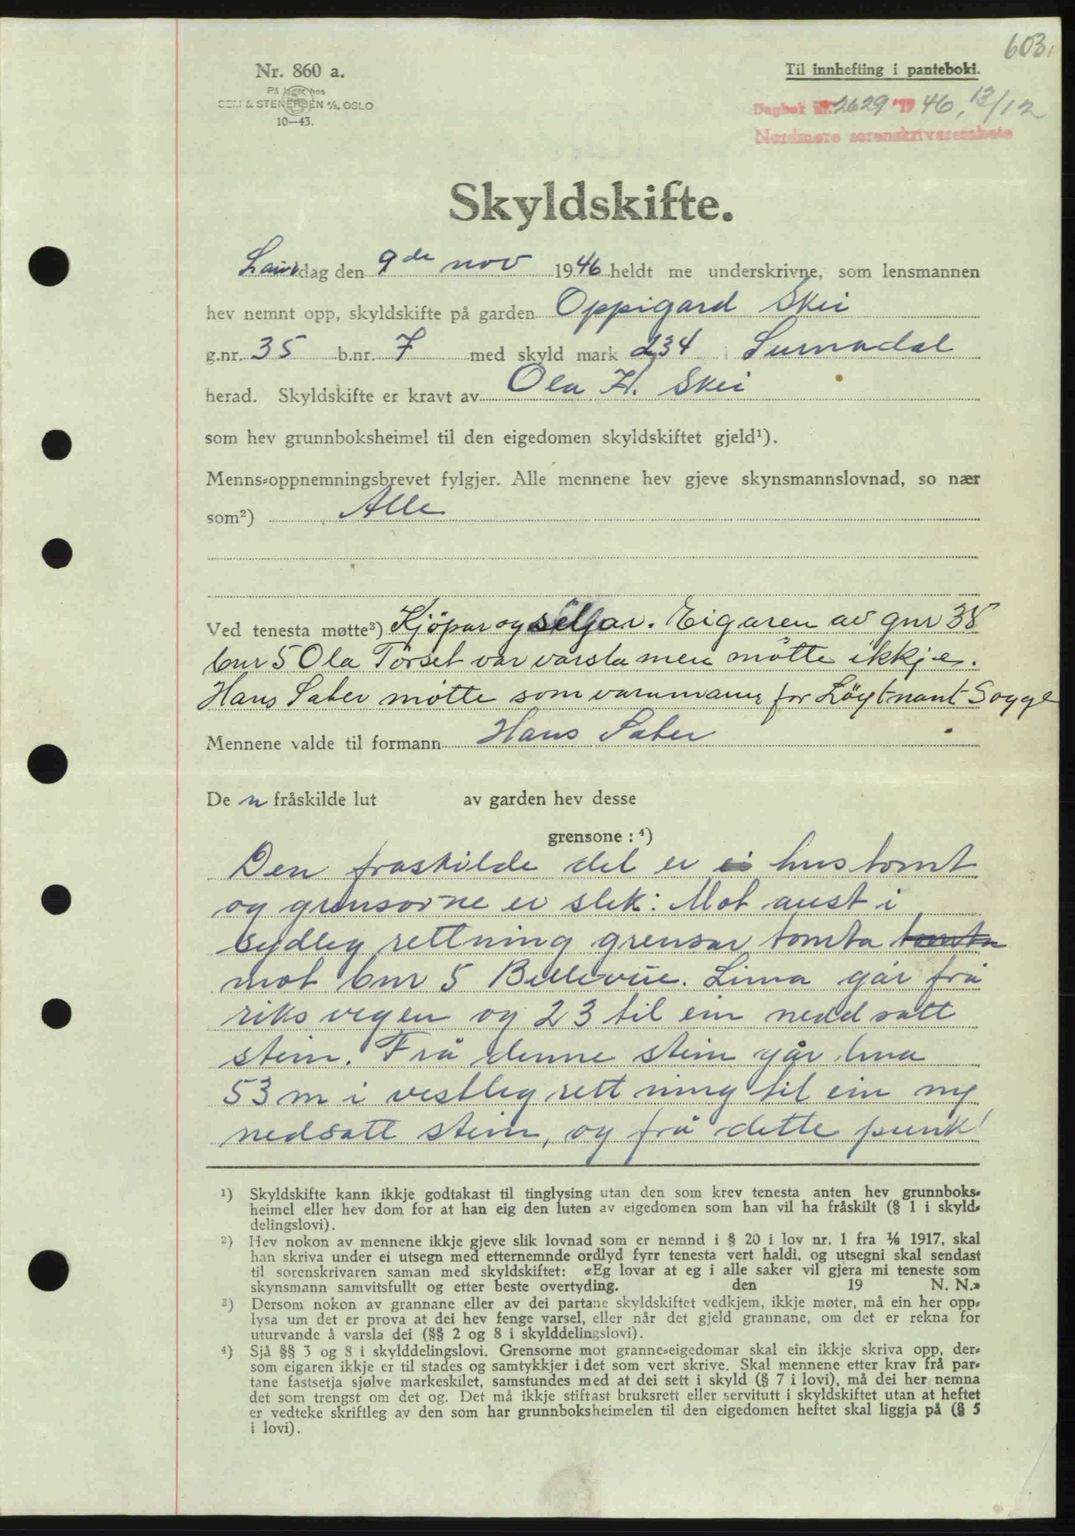 603.
Nr. 860 a.
På lager hos
SEM & STENERSEN A/S, OSLO
10—43.
Til innhefting i panteboki.
Dagbok nr. 2629 19 46, 13/12
Nordmøre sorenskrivarembete
Skyldskifte.
Laurdag den 9de nov 1946 heldt me underskrivne, som lensmannen
hev nemnt opp, skyldskifte på garden Oppigard Skei
g.nr. 35 b.nr. 7 med skyld mark 2,34 i Surnadal
herad. Skyldskifte er kravt av Ola H. Skei
som hev grunnboksheimel til den eigedomen skyldskiftet gjeld¹).
Menns-oppnemningsbrevet fylgjer. Alle mennene hev gjeve skynsmannslovnad, so nær
som²) Alle
Ved tenesta møtte³) Kjöpar og seljar. Eigaren av gnr 35
bnr 5 Ola Törset var varsla men møtte ikkje.
Hans Sæter møtte som varamann for Løytnant Sogge
Mennene valde til formann Hans Sæter
De n fråskilde lut av garden hev desse
grensone : ⁴)
Den fraskilde del er ei hustomt
og grensorne er slik: Mot aust i
sydleg rettning grensar tomta tomta
mot bnr 5 Bellevue. Linna går frå
riksvegen og 23 til ein nedd satt
stein. Frå denne stein går lina
53 m i vestleg rettning til ein ny
nedsatt stein, og frå dette punkt
¹) Skyldskifte kann ikkje godtakast til tinglysing utan den som krev tenesta anten hev grunnboks-
heimel eller hev dom for at han eig den luten av eigedomen som han vil ha fråskilt (§ 1 i skyld-
delingslovi).
²) Hev nokon av mennene ikkje gjeve slik lovnad som er nemnd i § 20 i lov nr. 1 fra ⅙ 1917, skal
han skriva under ei utsegn med etternemnde ordlyd fyrr tenesta vert haldi, og utsegni skal sendast
til sorenskrivaren saman med skyldskiftet: «Eg lovar at eg i alle saker vil gjera mi teneste som
skynsmann samvitsfullt og etter beste overtyding. den 19 N. N.»
³) Dersom nokon av grannane eller av dei partane skyldskiftet vedkjem, ikkje møter, må ein her opp-
lysa um det er prova at dei hev fenge varsel, eller når det gjeld grannane, om det er rekna for
uturvande å varsla dei (§§ 2 og 8 i skylddelingslovi).
⁴) Sjå §§ 3 og 8 i skylddelingslovi. Grensorne mot granne-eigedomar skal ein ikkje skriva opp, der-
som eigaren ikkje er til stades og samtykkjer i det som vert skrive. Skal mennene etter krav frå par-
tane fastsetja sjølve markeskilet, samstundes med at dei sett i skyld (§ 7 i lovi), må dei her nemna
det som trengst om det og. Det må ikkje stiftast bruksrett eller servitutt i skyldskiftet utan at heftet
er vedteke skriftleg av den som har grunnboksheimelen til den eigedomen heftet skal liggja på (§ 5
i lovi).